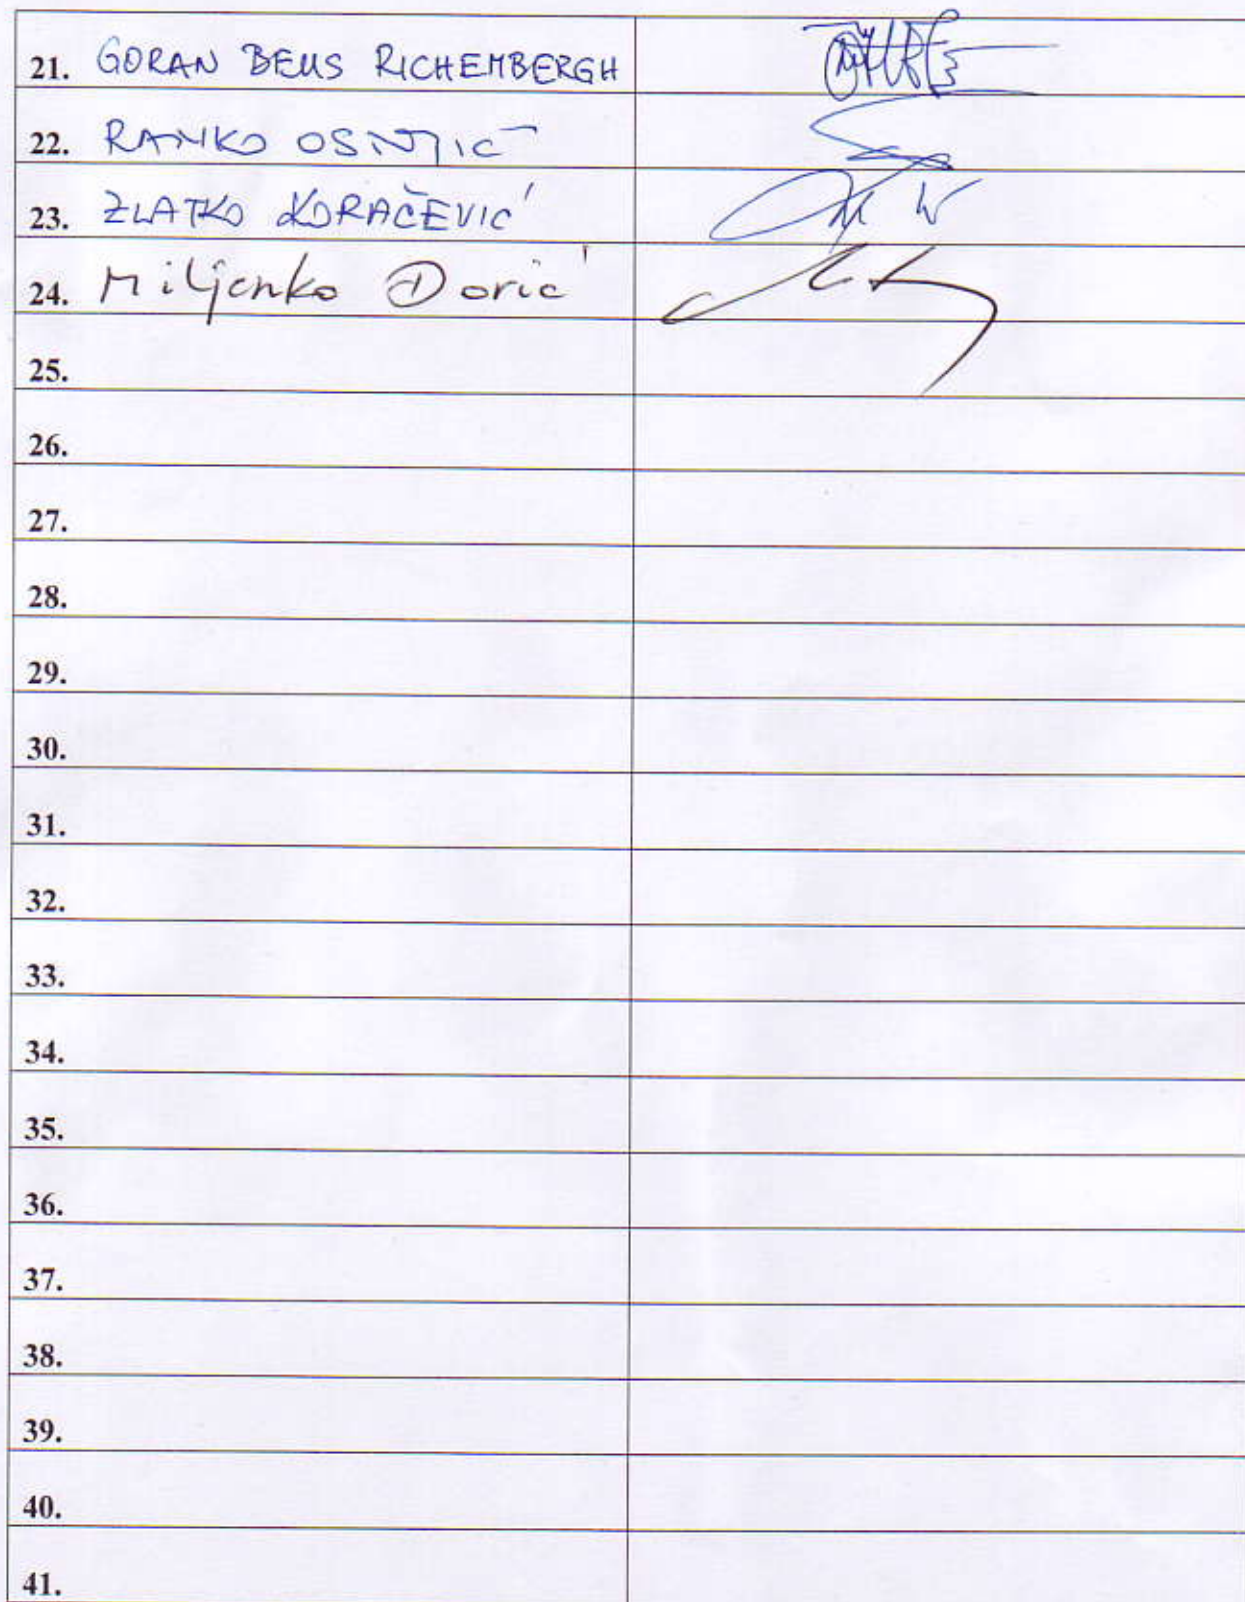 21. GORAN BEUS RICHEMBERGH
22. RANKO OSTOJIĆ
23. ZLATKO KORAČEVIĆ
24. Miljenko Dorić
25.
26.
27.
28.
29.
30.
31.
32.
33.
34.
35.
36.
37.
38.
39.
40.
41.